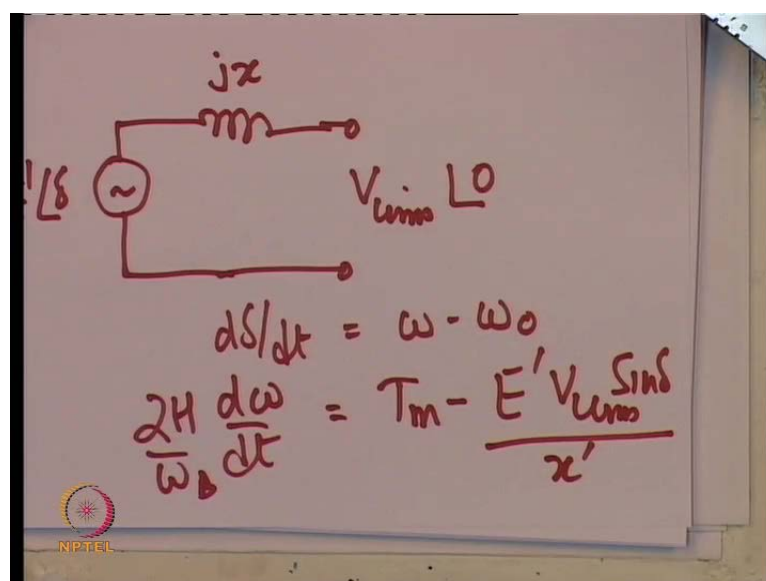 jx
'∠δ
~
V_LLrms ∠0
dδ/dt = ω - ω₀
2H/ω_B dω/dt = T_m - E' V_LLrms Sinδ / x'
NPTEL